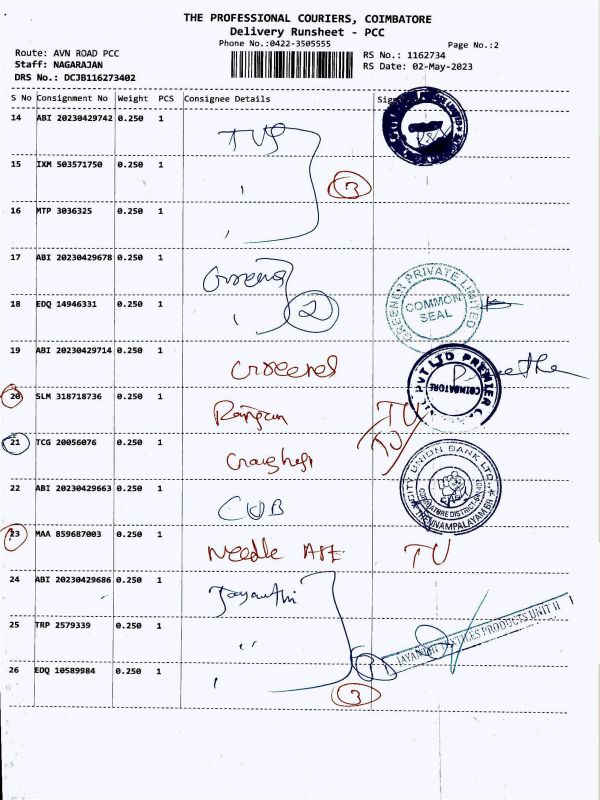 THE PROFESSIONAL COURIERS, COIMBATORE
Delivery Runsheet - PCC
Phone No.:0422-3505555
Page No.:2
Route: AVN ROAD PCC
RS No.: 1162734
Staff: NAGARAJAN
RS Date: 02-May-2023
DRS No.: DCJB116273402
S No Consignment No Weight PCS Consignee Details
14 ABI 20230429742 0.250 1 TVS
15 IXM 503571750 0.250 1 "
3
16 MTP 3036325 0.250 1 "
17 ABI 20230429678 0.250 1 Greens
GREENER PRIVATE LIMITED
COMMON SEAL
18 EDQ 14946331 0.250 1 "
2
19 ABI 20230429714 0.250 1 Greens
PVT LTD PREMIER
COIMBATORE
20 SLM 318718736 0.250 1 TU
21 TCG 20056076 0.250 1 TU
22 ABI 20230429663 0.250 1 CUB
CITY UNION BANK LTD.
COIMBATORE DISTRICT
THENNAMPALAYAM BR
23 MAA 859687003 0.250 1 Needle TU
24 ABI 20230429686 0.250 1 Jayanthi
25 TRP 2579339 0.250 1 "
PRODUCTS UNIT II
26 EDQ 10589984 0.250 1 "
3